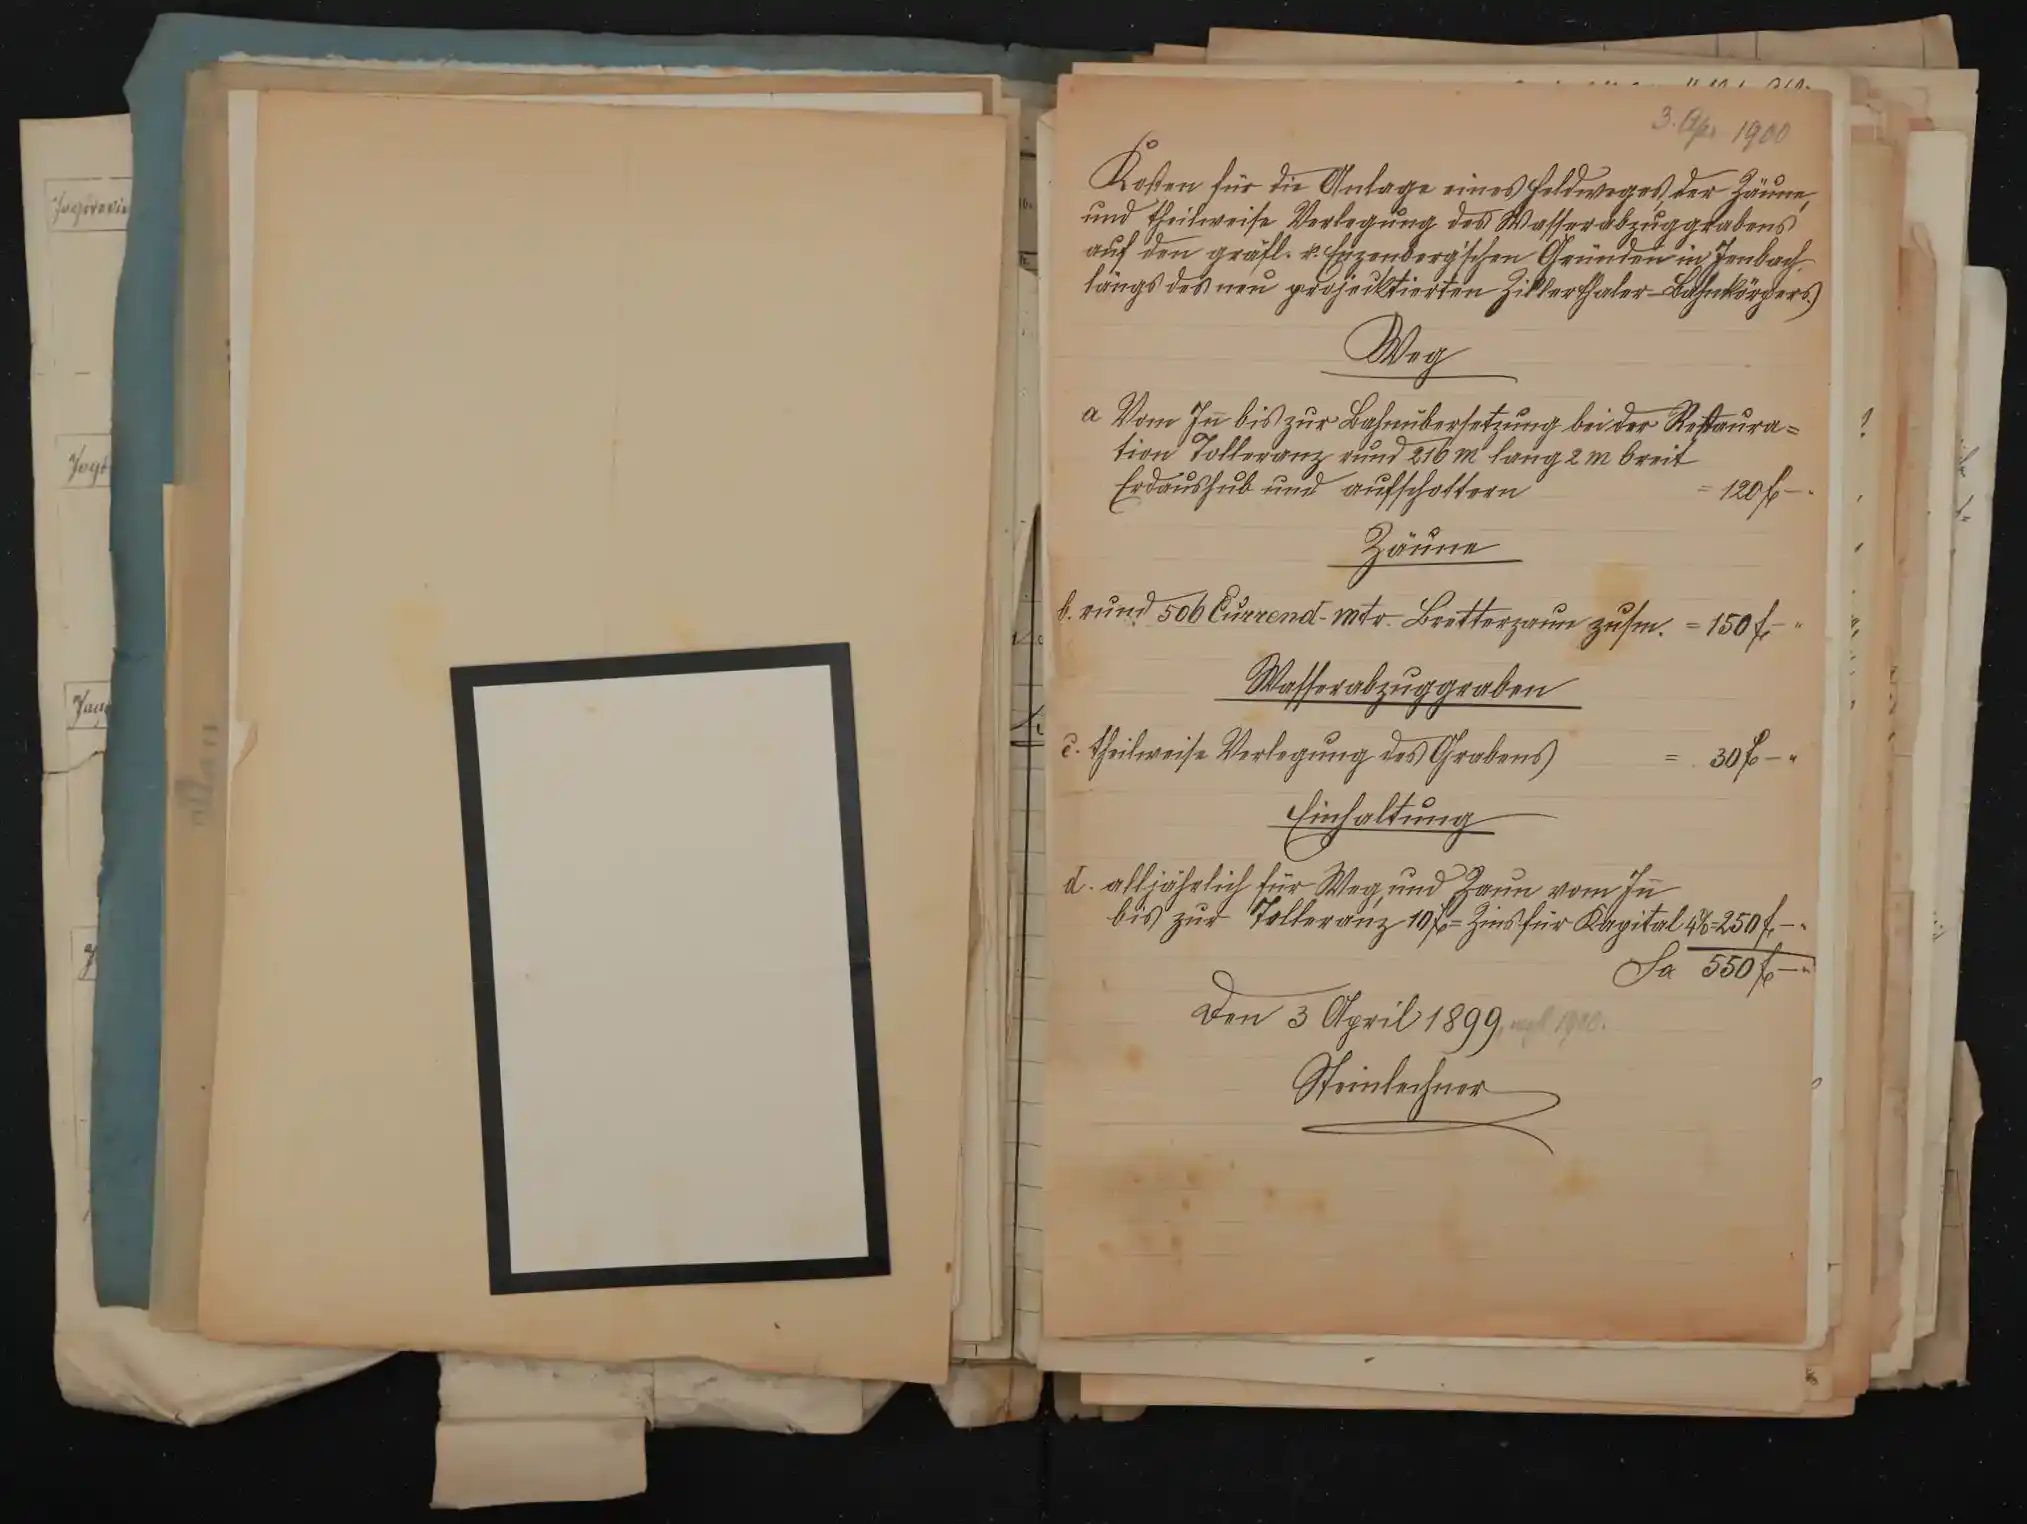 3. Apr. 1900
Kosten für die Anlage eines Feldweges, der Zäune,
und theilweise Verlegung des Wasserabzuggrabens
auf den gräfl. v. Enzenberg'schen Gründen in Jenbach
längs des neu projecktierten Zillerthaler-Bahnkörpers.
Weg
a Vom Iñ bis zur Bahnübersetzung bei der Restaura=
tion Tolleranz rund 216 m lang 2 m breit
Erdaushub und aufschottern = 120 f –.
Zäune
b. rund 506 Currend-Mtr. Bretterzaun zusm. = 150 f – "
Wasserabzuggraben
c. theilweise Verlegung des Grabens = 30 f – "
Einhaltung
d. alljährlich für Weg, und Zaun vom Iñ
bis zur Tolleranz 10 f = Zins für Kapital 4% = 250 f –.
Sa 550 f – "
Den 3 April 1899, 1900.
Steinlechner